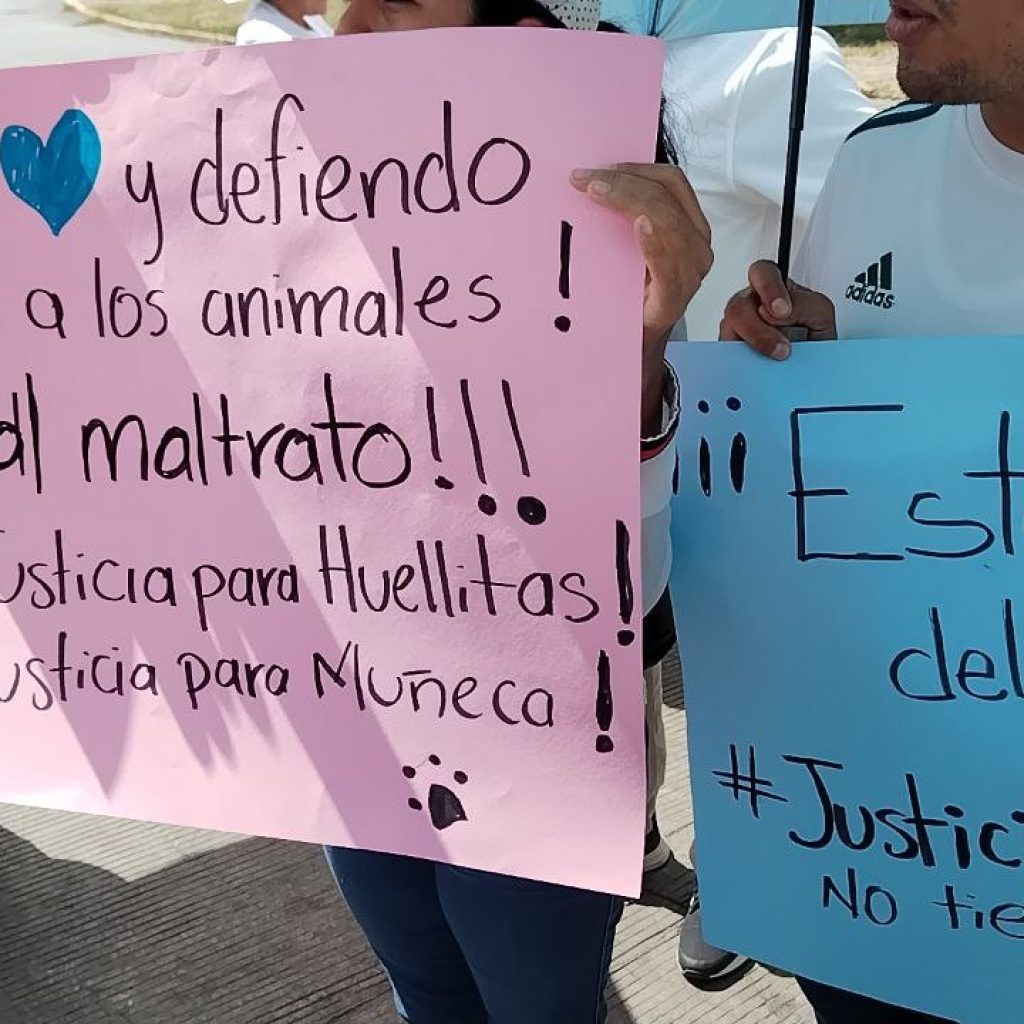 y defiendo
a los animales!
al maltrato!!!
usticia para Huellitas!
usticia para Muñeca!
adidas
¡¡¡ Est
del
#Justici
No tie